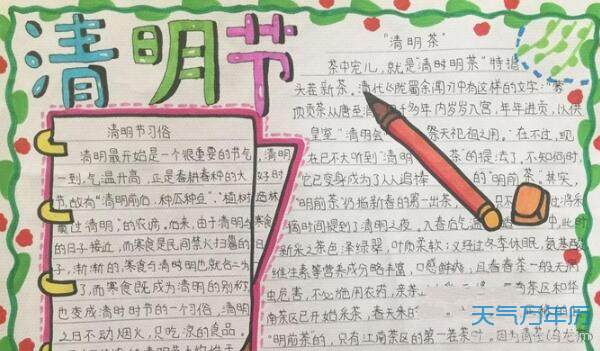 清明节
清明节习俗
清明最开始是一个很重要的节气,清明
一到,气温升高,正是春耕春种的大好时
节,故有"清明前后,种瓜种豆"."植树造林
莫过清明"的农谚。后来,由于清明与寒食
的日子接近,而寒食是民间禁火扫墓的
子,渐渐的,寒食与清明也就合二为
了,而寒食既成为清明的别称,
也变成清明时节的一个习俗,清明
之日不动烟火,只吃凉的食品。
"清明茶"
茶中宠儿,就是"清明茶"特指
头茬新茶,清代
顶贡茶从唐至 岁岁入宫,年年进贡,以供
皇室"清明会" 祭天祀祖之用,"在不过,现
在已不太听到"清明 茶"的提法了,不知何时,
它已变身成为了人人追捧 的"明前茶"其实,
"明前茶"仍指新春的第一出茶,
摘时间提到了清明之夜。入春后气温
新采之茶色泽绿翠,叶质柔软;又经过冬季休眠,氨基酸
维生素等营养成分略丰富,口感鲜爽,且春春茶一般无病
虫危害,不必施用农药,
南茶区已开始采茶,春天来的
"明前茶"的,只有江南茶区的第一茬茶叶,因
天气万年历